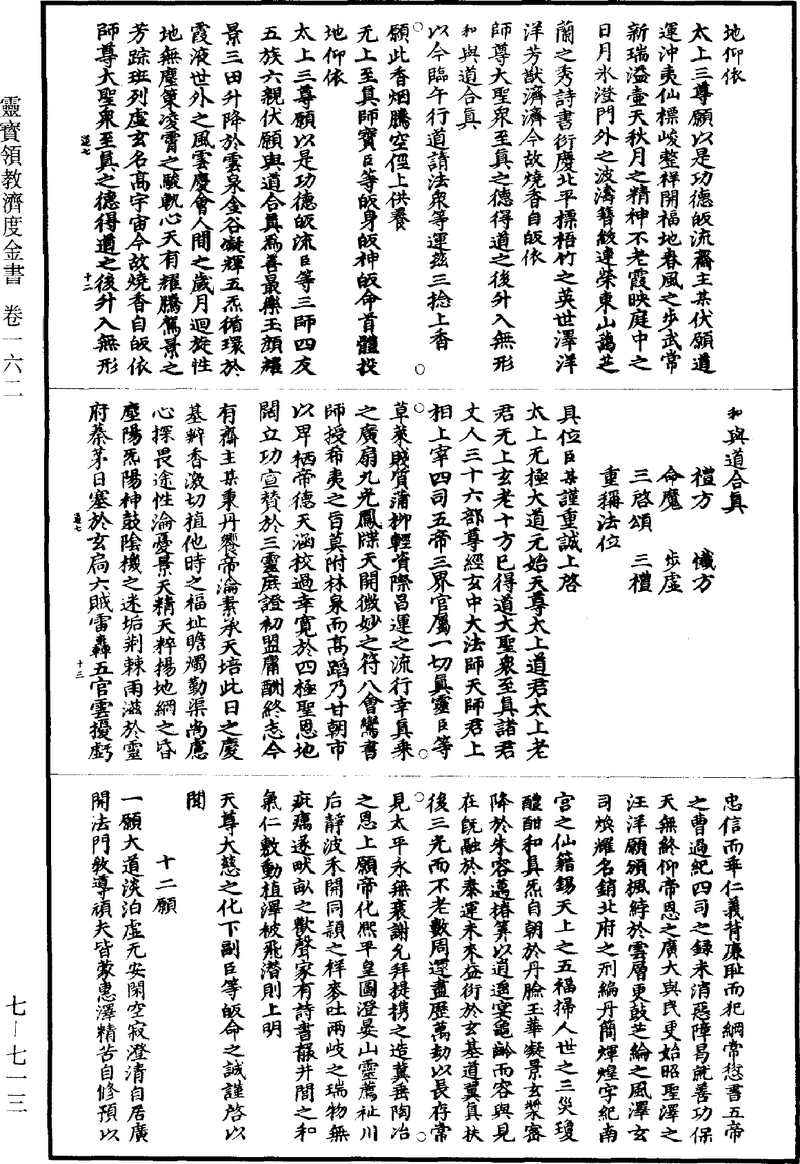 靈寶領教濟度金書 卷一六二
地仰依
太上三尊願以是功德皈流齋主某伏願道
運沖夷仙標峻整祥開福地春風之步武常
新瑞溢壷天秋月之精神不老霞映庭中之
日月氷澄門外之波濤簪紱連榮東山藹芝
蘭之秀詩書衍慶北平標梧竹之英世澤洋
洋芳猷濟濟今故燒香自皈依
師尊大聖衆至眞之德得道之後升入無形
和與道合眞
以今臨午行道請法衆等運兹三捻上香
願此香烟騰空徑上供養
无上至眞師寶臣等皈身皈神皈命首體投
地仰依
太上三尊願以是功德皈流臣等三師四友
五族六親伏願與道合眞爲善最樂玉顔耀
景三田升降於雲泉金谷凝輝五炁循環於
霞液世外之風雲慶會人間之歲月迴旋性
地無塵策凌霄之駿軌心天有耀騰駕景之
芳踪班列虛玄名高宇宙今故燒香自皈依
師尊大聖衆至眞之德得道之後升入無形
道七 十二
和與道合眞
禮方 懴方
命魔 步虛
三啓頌 三禮
重稱法位
具位臣某謹重誠上啓
太上无極大道元始天尊太上道君太上老
君无上玄老十方已得道大聖衆至眞諸君
丈人三十六部尊經玄中大法師天師君上
相上宰四司五帝三界官屬一切眞靈臣等
草萊賤質蒲柳輕資際昌運之流行幸眞乘
之廣扇九光鳳牒天開微妙之符八會鸞書
師授希夷之旨莫附林泉而高蹈乃甘朝市
以卑栖帝德天涵校過幸寛於四極聖恩地
闊立功宣賛於三靈庶證初盟庸酬終志今
有齋主某東丹饗帝瀹素承天培此日之慶
基辨香激切植他時之福址瞻燭勤渠尚慮
心探畏途性淪憂景天精天粹揚地網之昏
塵陽炁陽神鼓陰機之迷垢荆棘雨滋於靈
府蓁茅日塞於玄扃六賊雷轟五官雲擾虧
道七 十三
忠信而乖仁義背廉耻而犯綱常愆書五帝
之曹過紀四司之録未消惡障曷就善功保
天無終仰帝恩之廣大與民更始昭聖澤之
汪洋願頒楓綍於雲層更鼓芝綸之風澤玄
司煥耀名銷北府之刑編丹簡煇煌字紀南
宮之仙籍錫天上之五福掃人世之三災瓊
醴酣和眞炁自朝於丹臉玉華凝景玄漿密
降於朱容邁椿筭以逍遥宴龜齡而容與見
在旣融於泰運未來益衍於玄基道翼眞扶
後三光而不老數周還盡歷萬劫以長存常
見太平永無衰謝允拜提携之造冀垂陶冶
之恩上願帝化熈平皇圖澄晏山靈薦祉川
后靜波禾開同頴之祥麥吐兩岐之瑞物無
疵癘遂畎畝之歡聲家有詩書罷井閭之和
氣仁敷動植澤被飛潛則上明
天尊大慈之化下副臣等皈命之誠謹啓以
聞
十二願
一願大道淡泊虛无安閑空寂澄清自居廣
開法門敎導頑夫皆蒙惠澤精苦自修預以
七-七一三